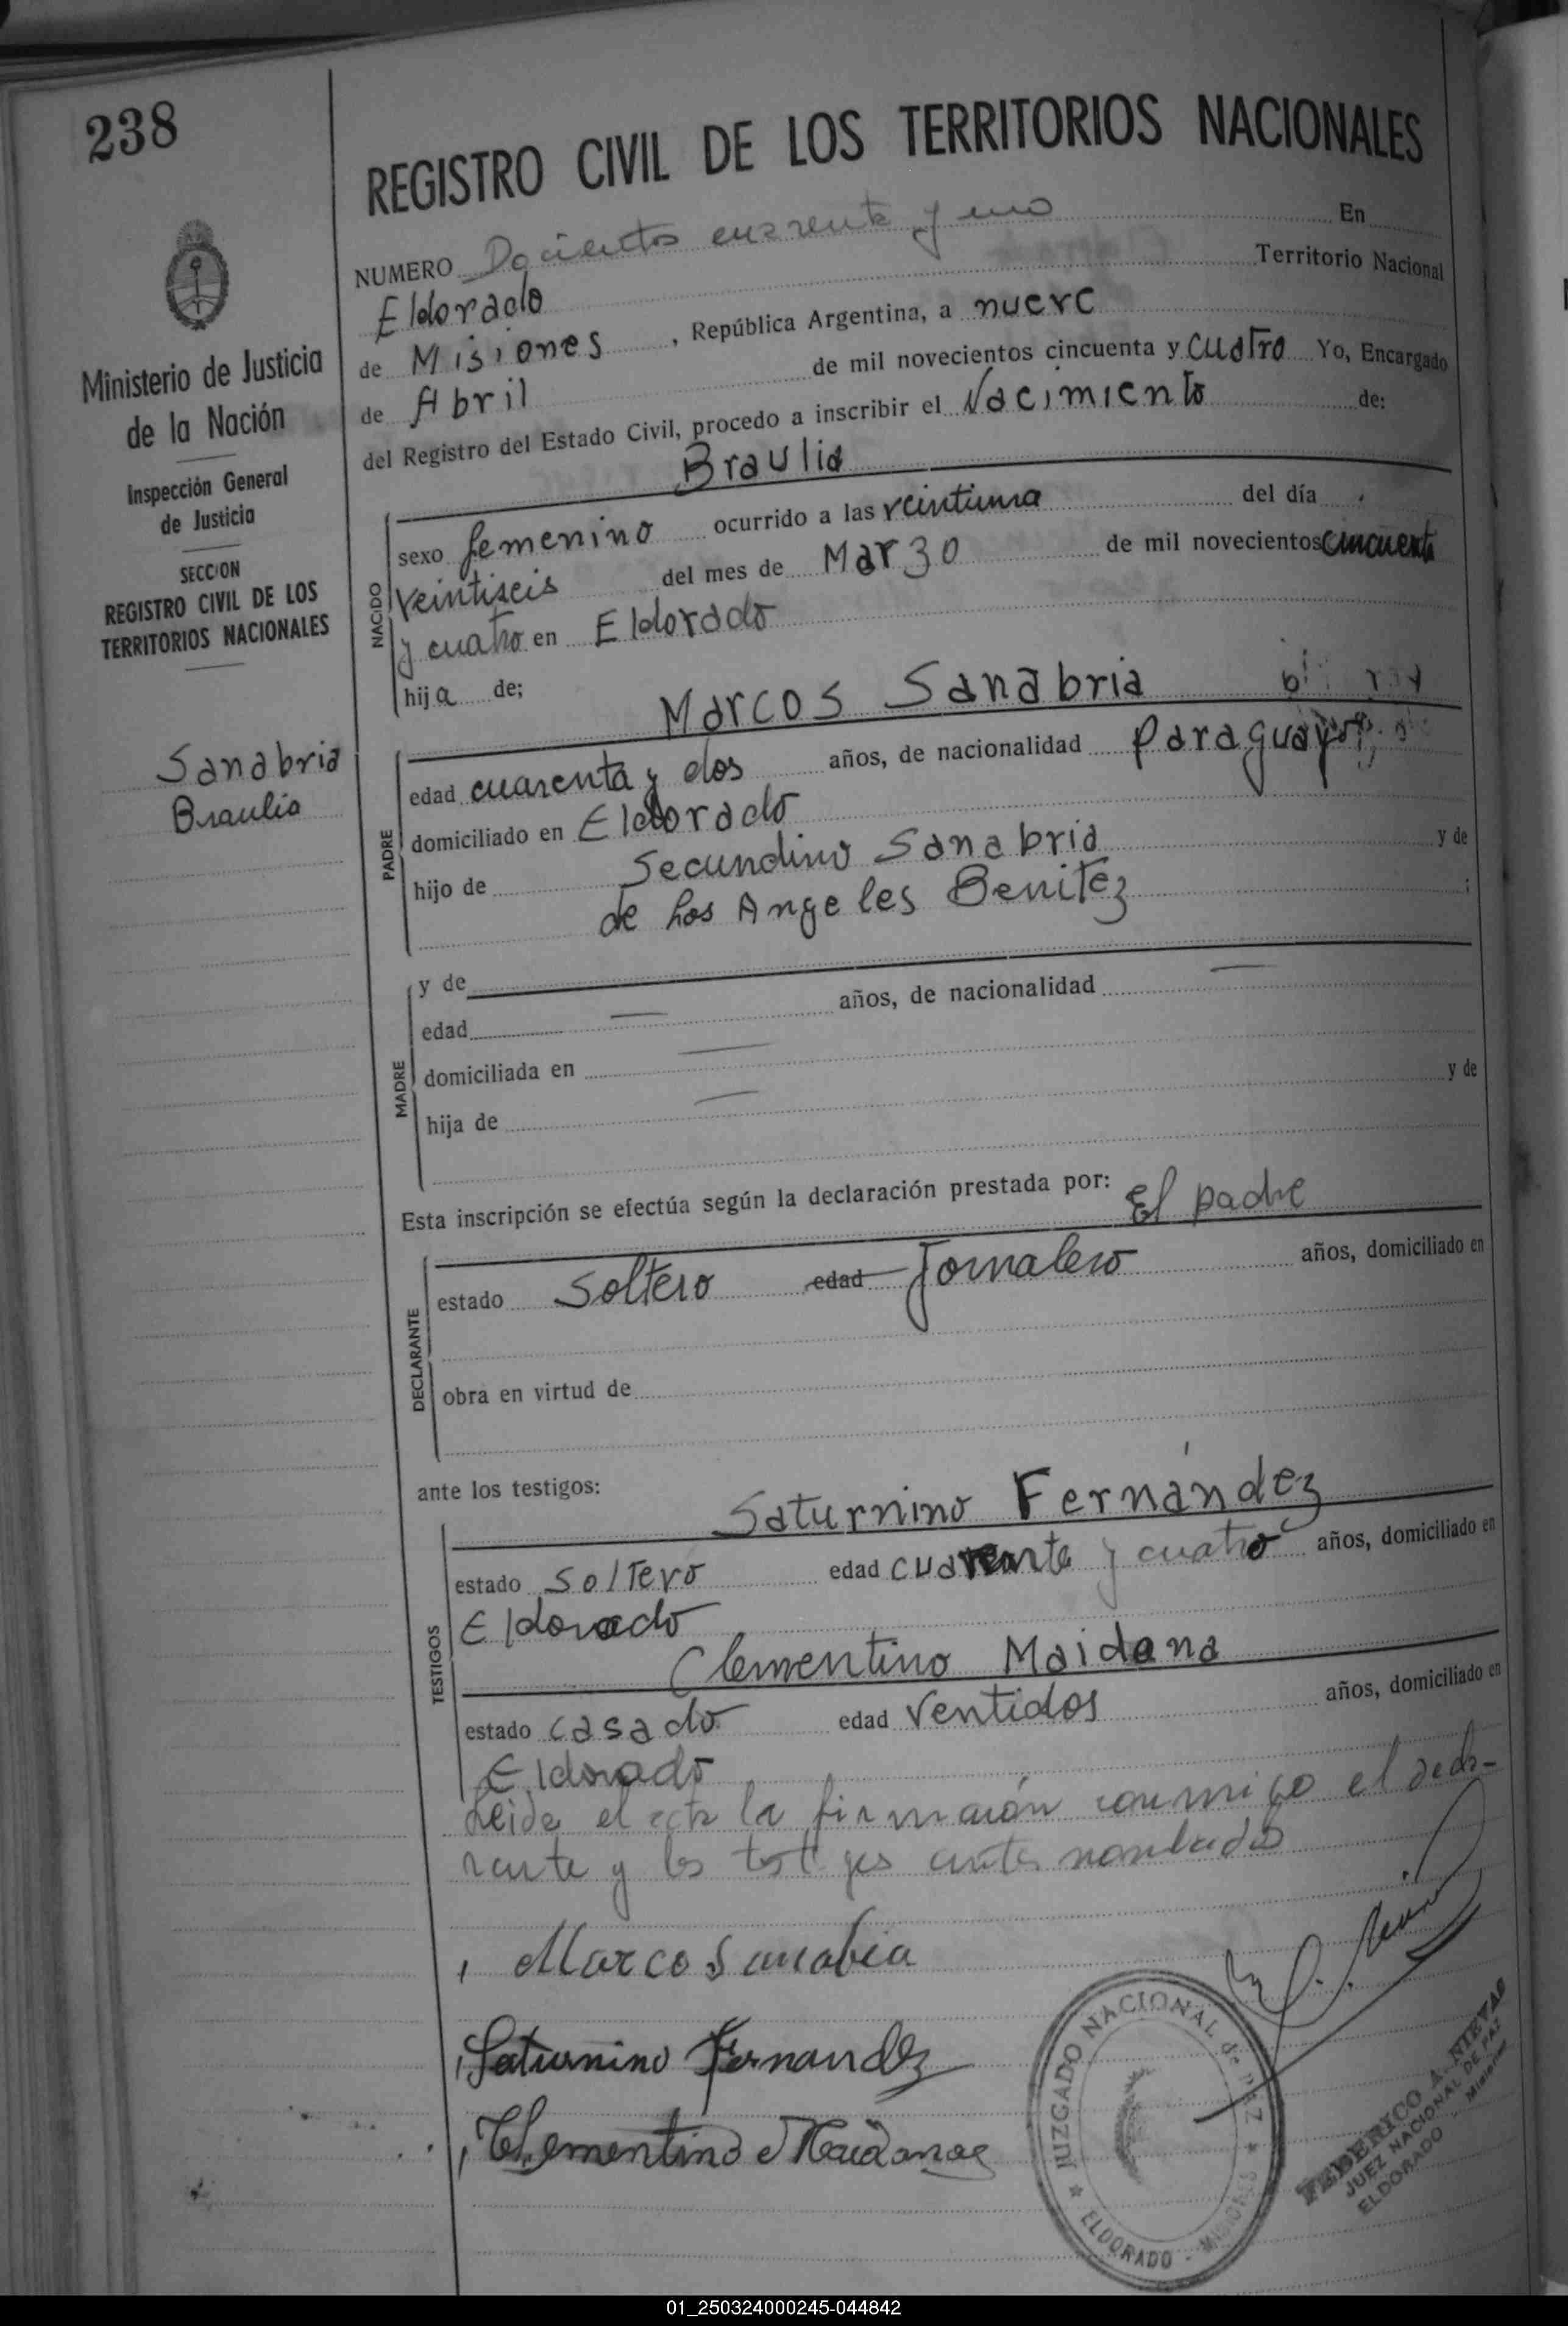 238
REGISTRO CIVIL DE LOS TERRITORIOS NACIONALES
NUMERO Docientos cuarenta y uno En
Eldorado Territorio Nacional
de Misiones, República Argentina, a nueve
de Abril de mil novecientos cincuenta y cuatro Yo, Encargado
del Registro del Estado Civil, procedo a inscribir el Nacimiento de:
Ministerio de Justicia
de la Nación
Inspección General
de Justicia
SECCION
REGISTRO CIVIL DE LOS
TERRITORIOS NACIONALES
Sanabria
Braulia
NACIDO
Braulia
sexo femenino ocurrido a las veintiuna del día
veintiseis del mes de Marzo de mil novecientos cincuenta
y cuatro en Eldorado
hija de;
PADRE
Marcos Sanabria
edad cuarenta y dos años, de nacionalidad Paraguayo
domiciliado en Eldorado
hijo de Secundino Sanabria y de
de Los Angeles Benitez ;
MADRE
y de
edad — años, de nacionalidad —
domiciliada en —
hija de — y de
Esta inscripción se efectúa según la declaración prestada por: El padre
DECLARANTE
estado Soltero edad Jornalero años, domiciliado en
obra en virtud de
ante los testigos:
TESTIGOS
Saturnino Fernández
estado Soltero edad cuarenta y cuatro años, domiciliado en
Eldorado
Clementino Maidana
estado casado edad ventidos años, domiciliado en
Eldorado
Leida el acta la firmarón conmigo el decla-
rante y los testigos antes nombrados
Marco Sanabria
Saturnino Fernandez
Clementino Maidana
JUZGADO NACIONAL de PAZ
ELDORADO - MISIONES
FEDERICO A. NIEVAS
JUEZ NACIONAL DE PAZ
ELDORADO - Misiones
01_250324000245-044842